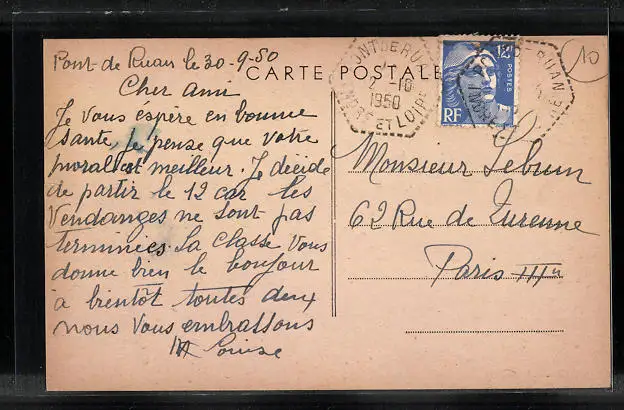 Pont-de Ruan le 30-9-50
CARTE POSTALE
Cher ami
Je vous éspère en bonne
santé, je pense que votre
moral est meilleur. Je décide
de partir le 12 car les
Vendanges ne sont pas
terminées. La classe vous
donne bien le bonjour
à bientôt toutes deux
nous vous embrassons
Louise
PONT DE RUAN
2 -10
1950
INDRE ET LOIRE
12F
POSTES
RF
10
Monsieur Lebrun
62 Rue de Turenne
Paris III